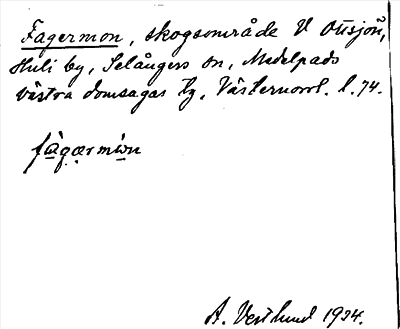 Fagermon, skogsområde V Oxsjön,
Huli by, Selångers sn, Medelpads
västra domsagas tg, Västernorrl. l. 74.
fàgærmòn
A. Vestlund 1924.